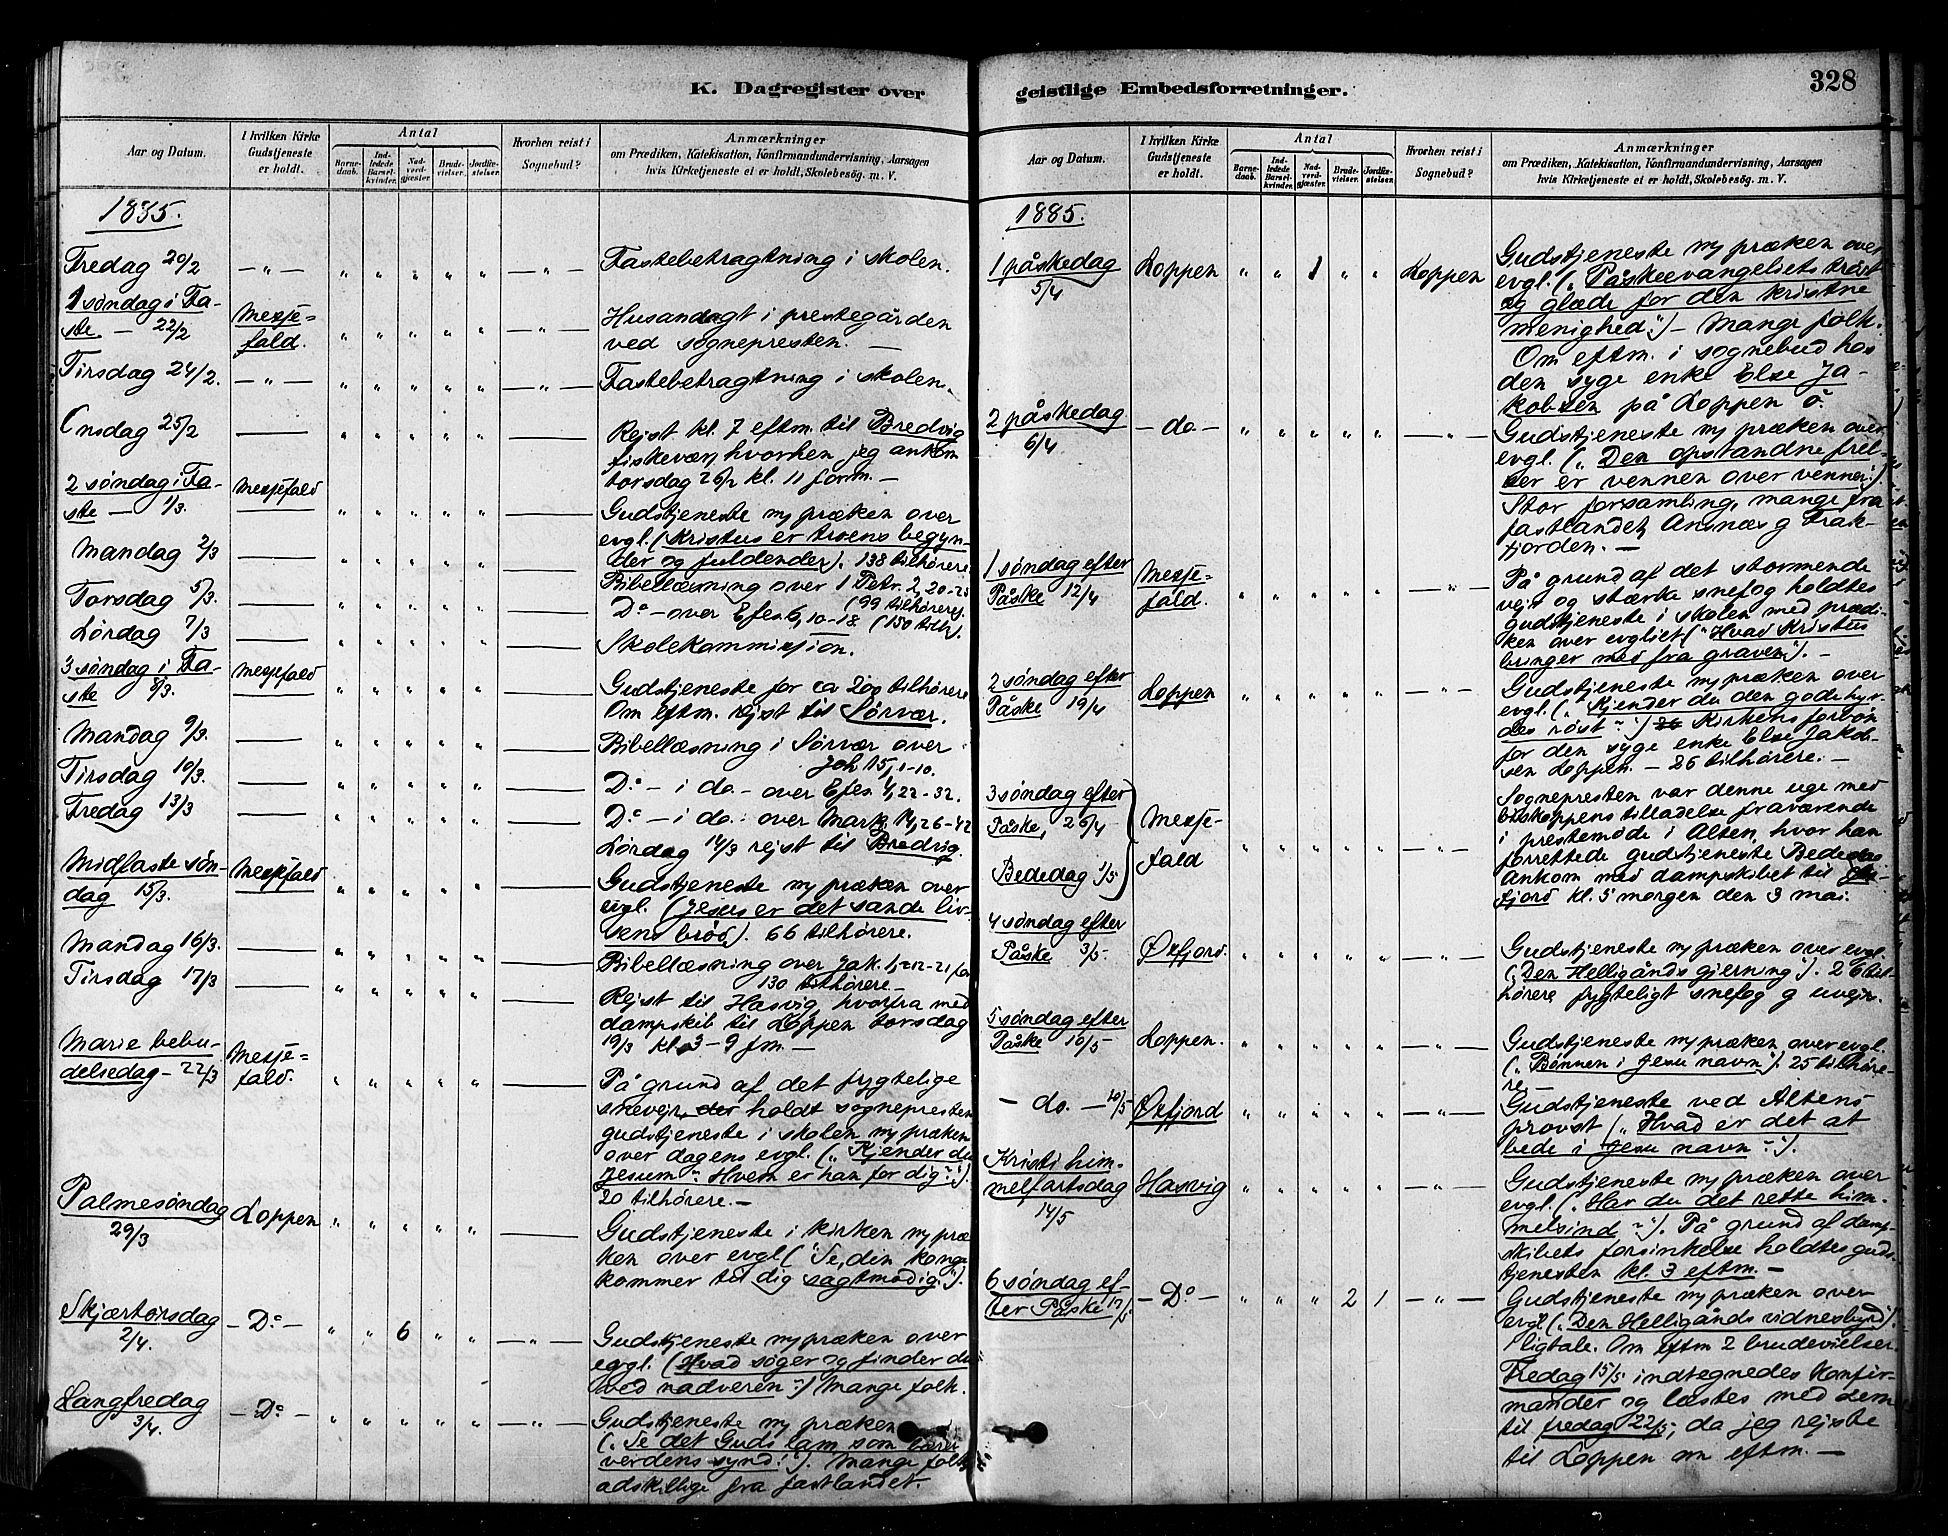 K. Dagregister over
Aar og Datum.
I hvilken Kirke
Gudstjeneste
er holdt.
Antal
Barne-
daab.
Ind-
ledede
Barsel-
kvinder.
Nad-
verd-
gjæster.
Brude-
vielser.
Jordfæs-
telser.
Hvorhen reist i
Sognebud?
Anmærkninger
om Prædiken, Katekisation, Konfirmandundervisning, Aarsagen
hvis Kirketjeneste ei er holdt, Skolebesøg. m. V.
1885.
Fredag 20/2 — „ — „ „ „ „ „ — „ — Fastebetragtning i skolen.
1 søndag i Fa-
ste — 22/2 Messe-
fald. „ „ „ „ „ — „ — Husandagt i prestegården
ved sognepresten. —
Tirsdag 24/2. — „ — „ „ „ „ „ — „ — Fastebetragtning i skolen.
Onsdag 25/2 — „ „ „ „ „ — Rejst kl. 7 eftm. til Bredvig
fiskevær, hvorhen jeg ankom
torsdag 26/2 kl. 11 form. —
2 søndag i Fa-
ste — 1/3. Messefald „ „ „ „ „ — Gudstjeneste m præken over
evgl. (Kristus er troens begyn-
der og fuldender). 138 tilhørere.
Mandag 2/3 — „ „ „ „ „ — Bibellæsning over 1 Petr. 2, 20-25
(99 tilhørere).
Torsdag 5/3. — „ „ „ „ „ — Do — over Efes 6, 10-18 (150 tilh).
Lørdag 7/3 — „ „ „ „ „ — Skolekommission.
3 søndag i Fa-
ste 8/3. Messefald „ „ „ „ „ — Gudstjeneste for ca 200 tilhørere
Om eftm. rejst til Sørvær.
Mandag 9/3. — „ „ „ „ „ — Bibellæsning i Sørvær over
Joh 15, 1-10.
Tirsdag 10/3. — „ „ „ „ „ — Do — i do. — over Efes 4, 22-32.
Fredag 13/3 — „ „ „ „ „ — Do — i do. over Mark. 14, 26-42
Lørdag 14/3 rejst til Bredvig.
Midfaste søn-
dag 15/3. Messefald „ „ „ „ „ — Gudstjeneste m præken over
evgl. (Jesus er det sande liv-
sens brød). 66 tilhørere.
Mandag 16/3. — „ „ „ „ „ — Bibellæsning over Jak. 1, 12-21 for
130 tilhørere —
Tirsdag 17/3 — „ „ „ „ „ — Rejst til Hasvig, hvorfra med
dampskib til Loppen torsdag
19/3 kl. 3-9 fm. —
Marie bebu-
delsedag — 22/3 Messe-
fald. „ „ „ „ „ — På grund af det frygtelige
snevejr, der holdt sognepresten
gudstjeneste i skolen m præken
over dagens evgl. („Kjender du
Jesum? Hvem er han for dig?“).
20 tilhørere. —
Palmesøndag
29/3 Loppen „ „ „ „ „ — Gudstjeneste i kirken m præ-
ken over evgl. („Se, din konge
kommer til dig sagtmodig“).
Skjærtorsdag
2/4. — Do — „ „ 6 „ „ — „ — Gudstjeneste m præken over
evgl. (Hvad søger og finder du
ved nadveren?) Mange folk.
Langfredag
3/4. — Do — „ „ „ „ „ — „ — Gudstjeneste m præken
(„Se det Guds lam som bærer
verdens synd!“). Mange folk
adskillige fra fastlandet.
geistlige Embedsforretninger.
328
Aar og Datum.
I hvilken Kirke
Gudstjeneste
er holdt.
Antal
Barne-
daab.
Ind-
ledede
Barsel-
kvinder.
Nad-
verd-
gjæster.
Brude-
vielser.
Jordfæs-
telser.
Hvorhen reist i
Sognebud?
Anmærkninger
om Prædiken, Katekisation, Konfirmandundervisning, Aarsagen
hvis Kirketjeneste ei er holdt, Skolebesøg. m. V.
1885.
1 påskedag
5/4 Loppen „ „ 1 „ „ Loppen Gudstjeneste m præken over
evgl. („Påskeevangeliets trøst
og glæde for den kristne
menighed“) — Mange folk.
Om eftm. i sognebud hos
den syge enke Else Ja-
kobsen på Loppen ø.
2 påskedag
6/4 — do. — „ „ „ „ „ — „ — Gudstjeneste m præken over
evgl. („Den opstandne frel-
ser er vennen over venner“).
Stor forsamling, mange fra
fastlandet, Ansnæs og Frak-
fjorden. —
1 søndag efter
Påske 12/4 Messe-
fald. „ „ „ „ „ — „ — På grund af det stormende
vejr og stærka snefog holdtes
gudstjeneste i skolen med prædi-
ken over evgliet („Hvad Kristus
bringer med fra graven“). —
2 søndag efter
Påske 19/4 Loppen „ „ „ „ „ — „ — Gudstjeneste m præken over
evgl. („Kjender du den gode hyr-
des røst?“) Kirkens forbøn
for den syge enke Else Jakob-
sen Loppen. — 26 tilhørere. —
3 søndag efter
Påske, 26/4
Bededag 1/5 Messe-
fald „ „ „ „ „ — „ — Sognepresten var denne uge med
biskoppens tilladelse fraværende
i prestemøde i Alten, hvor han
forrettede gudstjeneste Bededag
ankom med dampskibet til Øx-
fjord kl. 5 morgen den 3 mai.
4 søndag efter
Påske 3/5. Øxfjord. „ „ „ „ „ — „ — Gudstjeneste m præken over evgl.
(„Den Helligånds gjerning“). 26 til-
hørere frygteligt snefog og uvejr.
5 søndag efter
Påske 10/5 Loppen. „ „ „ „ „ — „ — Gudstjeneste m præken over evgl.
(„Bønnen i Jesu navn“). 25 tilhøre-
re —
— do. — 10/5 Øxfjord „ „ „ „ „ — „ — Gudstjeneste ved Altens
provst („Hvad er det at
bede i Jesu navn?“).
Kristi him-
melfartsdag
14/5 Hasvig „ „ „ „ „ — „ — Gudstjeneste m præken over
evgl. („Har du det rette him-
melsind?“). På grund af damp-
skibets forsinkelse holdtes guds-
tjenesten kl. 3 eftm. —
6 søndag ef-
ter Påske 17/5 — Do — „ „ „ 2 1 — „ — Gudstjeneste m præken over
evgl („Den Helligånds vidnesbyrd“).
Ligtale. Om eftm 2 brudevielser.
Fredag 15/5 indtegnedes konfir-
mander og læstes med dem
til fredag 22/5, da jeg rejste
til Loppen om eftm. —